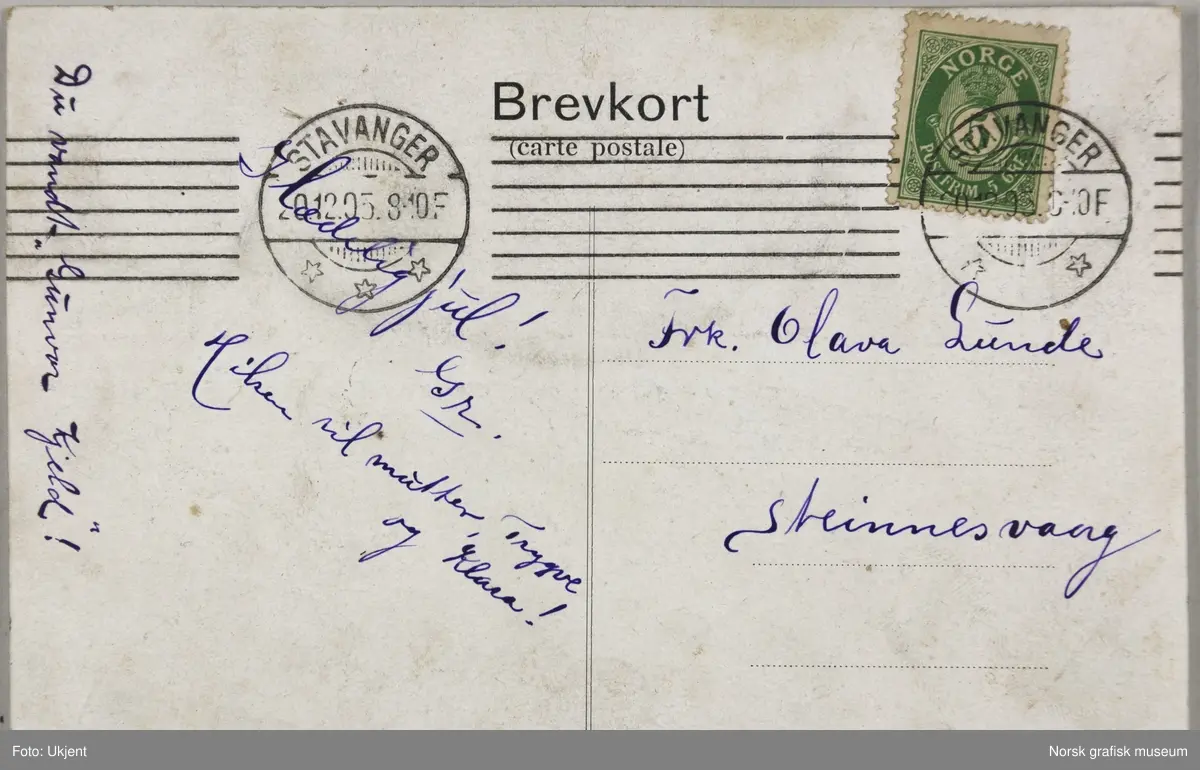 Brevkort
(carte postale)
NORGE
POSTFRIM. 5 ØRE
STAVANGER
20.12.05. 8-10F
STAVANGER
8-10F
Du vandt "Gunvor Kjeld"!
Glædelig jul!
Gr.
Hilsen til mutter, Trygve
og Klara!
Frk. Olava Lunde
Steinnesvaag
Foto: Ukjent
Norsk grafisk museum